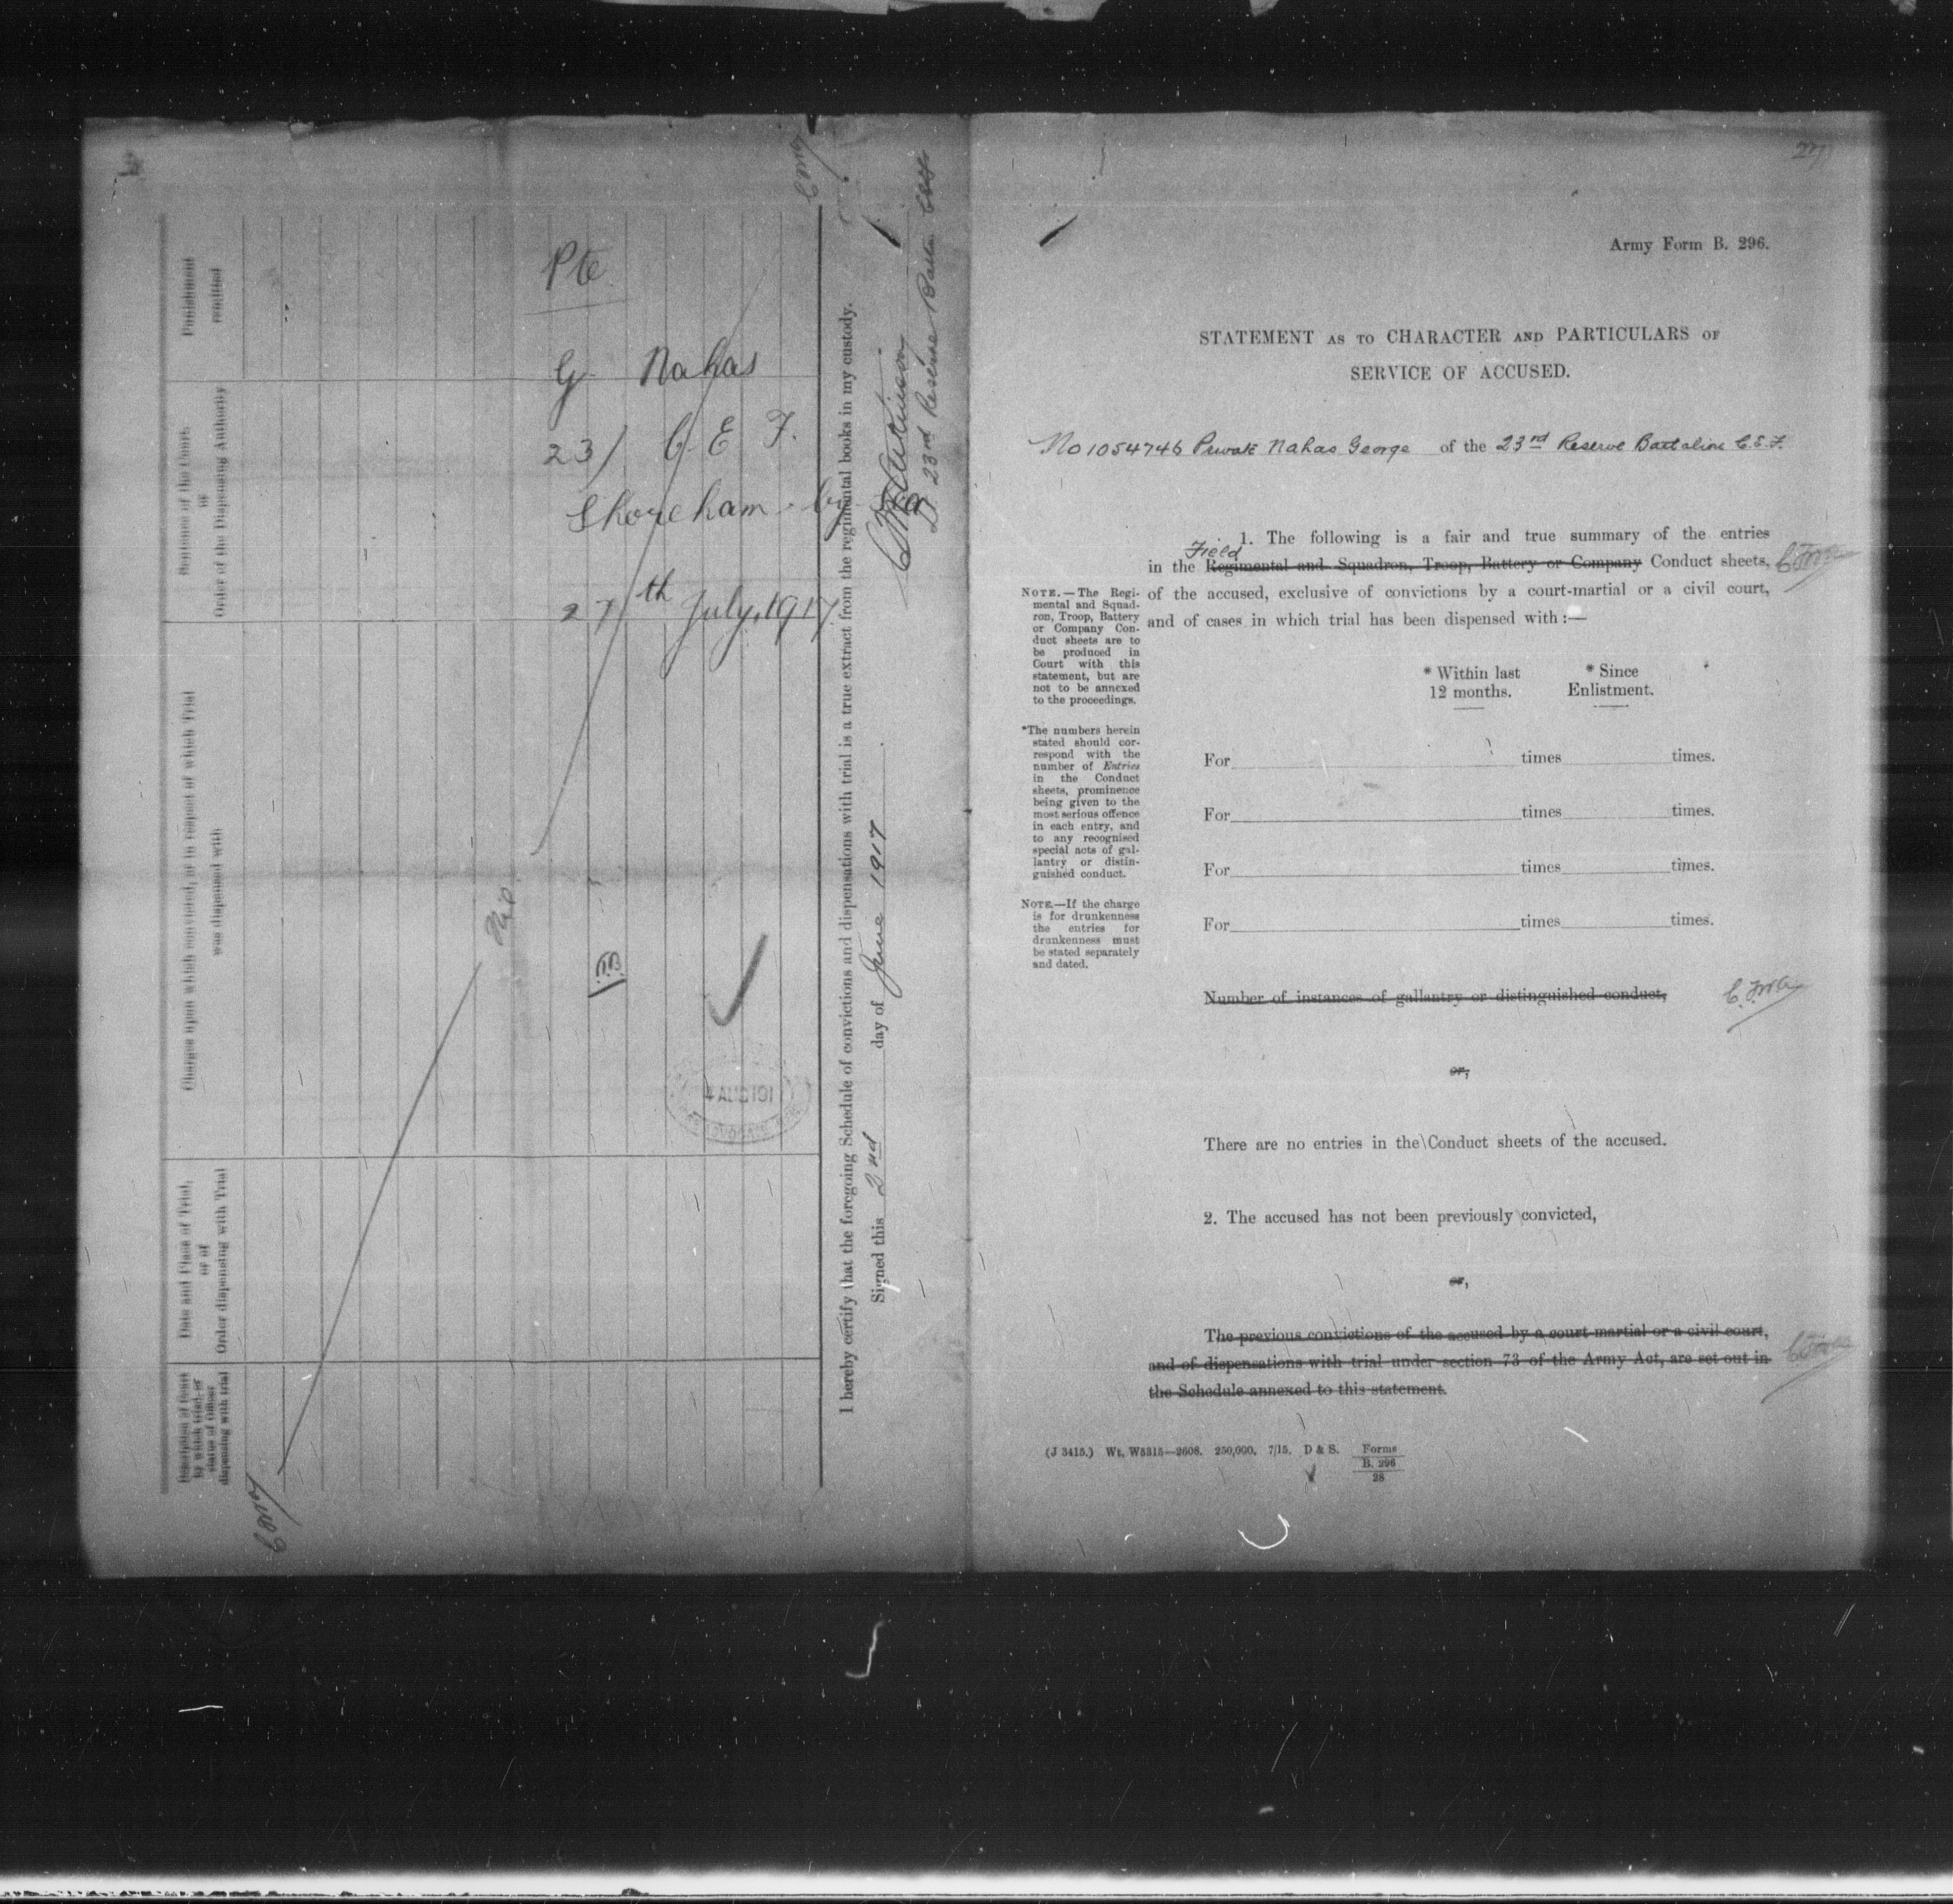 Punishment
remitted
Sentence of the Court
or
Order of the Dispensing Authority
Charges upon which convicted, or in respect of which Trial
was dispensed with
Date and Place of Trial,
or of
Order dispensing with Trial
Description of Court
by which tried, or
status of Officer
dispensing with trial
Pte
G. Nahas
23/ C. E. F.
Shoreham - by - Sea
27th July, 1917
Nil.
4 AUG 191
I hereby certify that the foregoing Schedule of convictions and dispensations with trial is a true extract from the regimental books in my custody.
Signed this 2nd day of June 1917
Lt 23rd Reserve Battn
Army Form B. 296.
STATEMENT AS TO CHARACTER AND PARTICULARS OF
SERVICE OF ACCUSED.
No 1054746 Private Nahas George of the 23rd Reserve Battalion C.E.F.
1. The following is a fair and true summary of the entries
Field
in the Regimental and Squadron, Troop, Battery or Company Conduct sheets,
of the accused, exclusive of convictions by a court-martial or a civil court,
and of cases in which trial has been dispensed with :—
NOTE.—The Regi-
mental and Squad-
ron, Troop, Battery
or Company Con-
duct sheets are to
be produced in
Court with this
statement, but are
not to be annexed
to the proceedings.
*The numbers herein
stated should cor-
respond with the
number of Entries
in the Conduct
sheets, prominence
being given to the
most serious offence
in each entry, and
to any recognised
special acts of gal-
lantry or distin-
guished conduct.
NOTE.—If the charge
is for drunkenness
the entries for
drunkenness must
be stated separately
and dated.
* Within last
12 months.
* Since
Enlistment.
For times times.
For times times.
For times times.
For times times.
Number of instances of gallantry or distinguished conduct,
or,
There are no entries in the Conduct sheets of the accused.
2. The accused has not been previously convicted,
or,
The previous convictions of the accused by a court martial or a civil court,
and of dispensations with trial under section 73 of the Army Act, are set out in
the Schedule annexed to this statement.
(J 3415.) Wt. W5315—2608. 250,000. 7/15. D & S. Forms
B. 296
28